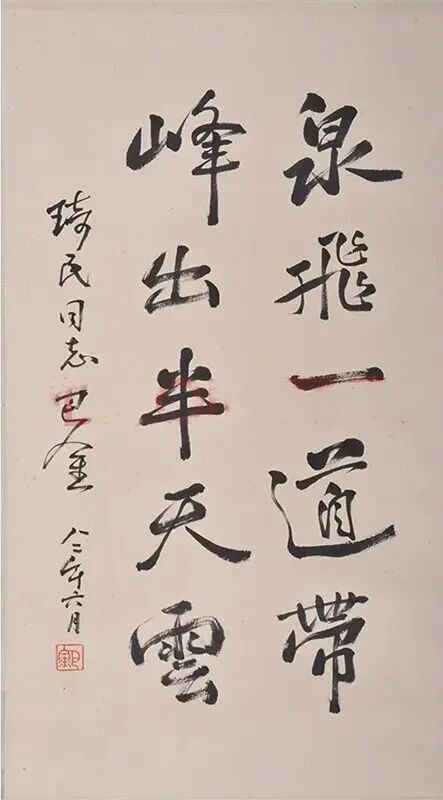 泉飛一道帶
峰出半天雲
琦民同志 巴金 八二年六月